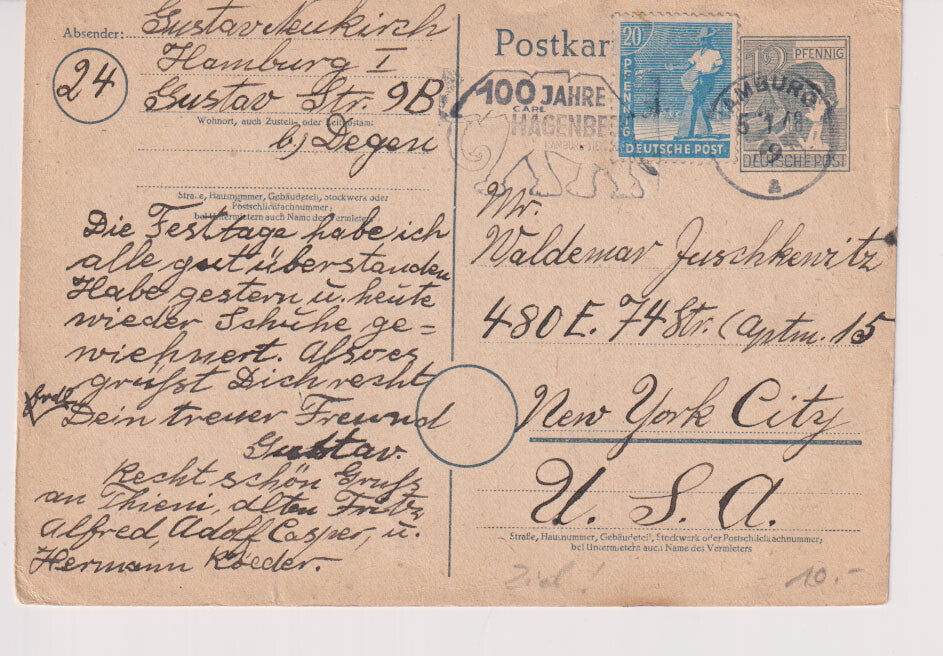 Absender: Gustav Neukirch
Hamburg 1
24
Gustav Str. 9B
Wohnort, auch Zustell- oder Leitpostamt
b) Degen
Straße, Hausnummer, Gebäudeteil, Stockwerk oder
Postschließfachnummer;
bei Untermietern auch Name des Vermieters
Die Festtage habe ich
alle gut überstanden
Habe gestern u. heute
wieder Schuhe ge=
wichnert. Also es
grüßst Dich recht
Dein treuer Freund
Gustav.
Recht schön Gruß
an Thieni, alten Fritz
Alfred, Adolf Casper, u.
Hermann Roeder.
Postkar
100 JAHRE
CARL
HAGENBE
20
PFENNIG
DEUTSCHE POST
12 PFENNIG
DEUTSCHE POST
HAMBURG
Mr.
Waldemar Juschkewitz
480 E. 74 Str. (Aptm. 15
New York City
U. S. A.
Straße, Hausnummer, Gebäudeteil, Stockwerk oder Postschließfachnummer;
bei Untermietern auch Name des Vermieters
Ziel!
10.-